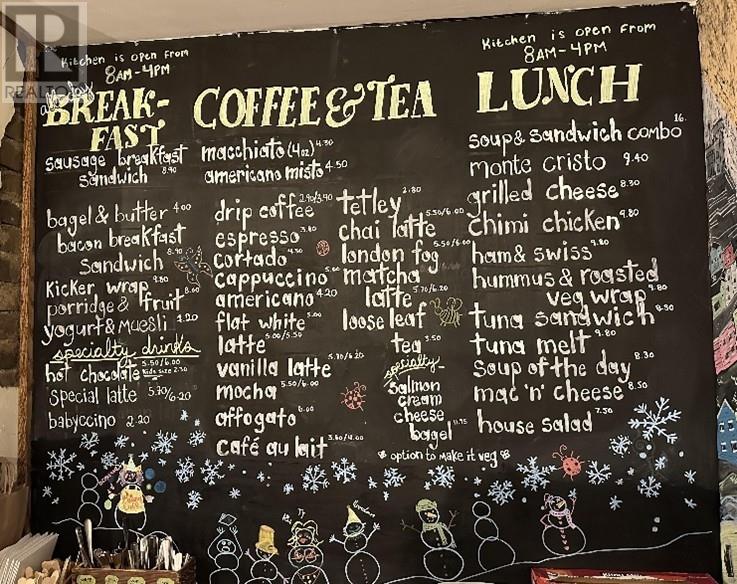 REALTOR
Kitchen is open from
8AM-4PM
BREAK-
FAST
sausage breakfast
sandwich 8.40
bagel & butter 4.00
bacon breakfast
sandwich 8.40
Kicker wrap 9.80
porridge & fruit 8.00
yogurt & muesli
specialty drinks
hot chocolate 5.50/6.00
Kids size 2.30
special latte 5.70/6.20
babyccino 2.20
COFFEE & TEA
macchiato (4oz) 4.30
americano misto 4.50
drip coffee 2.90/3.40
espresso 3.80
cortado 4.30
cappuccino 5.00
americano 4.20
flat white 5.00
latte 5.00/5.50
vanilla latte 5.70/6.20
mocha 5.50/6.00
affogato 6.00
café au lait
tetley 2.80
chai latte 5.50/6.00
london fog 5.50/6.00
matcha
latte 5.70/6.20
loose leaf
tea 3.50
specialty
salmon
cream
cheese
bagel
Kitchen is open from
8AM-4PM
LUNCH
soup & sandwich combo 16.
monte cristo 9.40
grilled cheese 8.30
chimi chicken 9.80
ham & swiss 9.80
hummus & roasted
veg wrap 9.80
tuna sandwich 8.30
tuna melt 9.80
soup of the day 8.30
mac 'n' cheese 8.50
house salad 7.50
* option to make it veg *